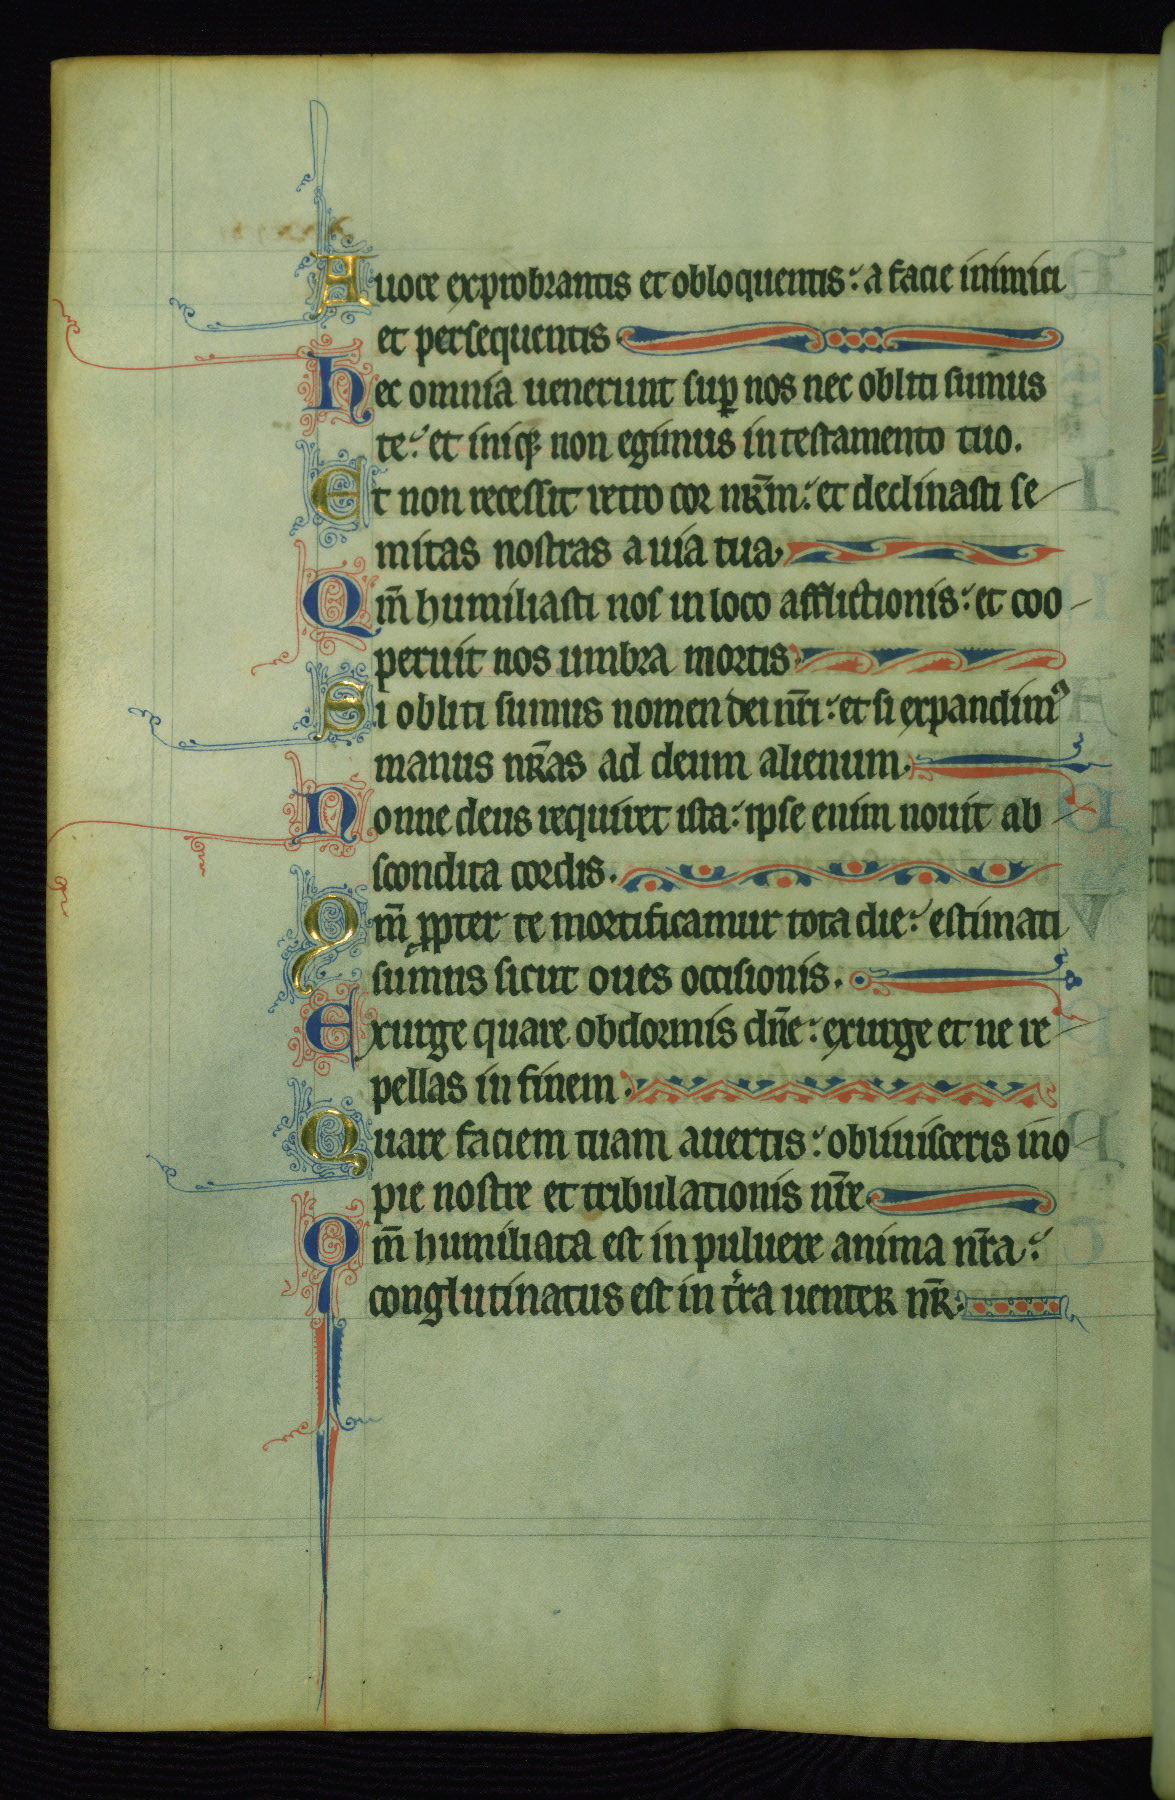 A uoce exprobrantis et obloquentis: a facie inimici
et persequentis
hec omnia uenerunt sup̱ nos nec obliti sumus
te: et iniq̱ non egimus in testamento tuo.
Et non recessit retro cor nr̄m: et declinasti se
mitas nostras a uia tua
Qm̄ humiliasti nos in loco afflictionis: et coo
peruit nos umbra mortis
Si obliti sumus nomen dei nr̄i: et si expandimꝰ
manus nr̄as ad deum alienum.
Nonne deus requiret ista: ipse enim nouit ab
scondita cordis.
Qm̄ ꝓpter te mortificamur tota die: estimati
sumus sicut oues occisionis.
Exurge quare obdormis dn̄e: exurge et ne re
pellas in finem.
Quare faciem tuam auertis: obliuisceris ino
pie nostre et tribulationis nr̄e
Qm̄ humiliata est in puluere anima nr̄a:
conglutinatus est in t̉ra uenter nr̄.